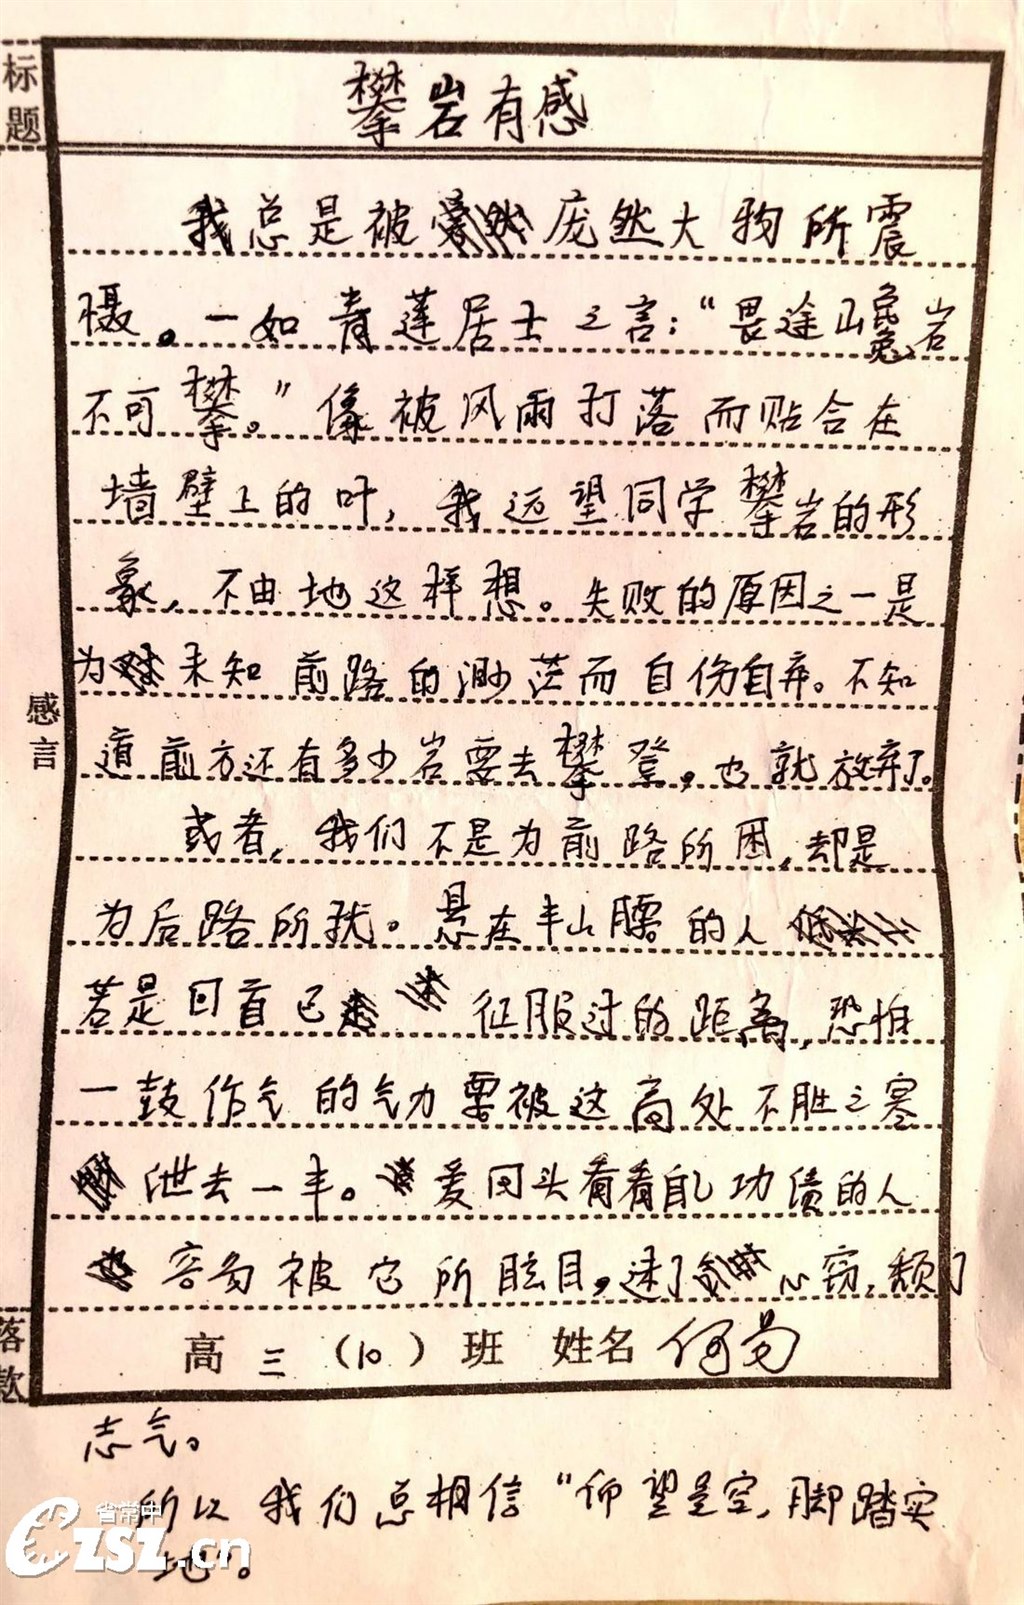 标题
攀岩有感
我总是被庞然大物所震
慑。一如青莲居士之言：“畏途巉岩
不可攀。”像被风雨打落而贴合在
墙壁上的叶，我远望同学攀岩的形
象，不由地这样想。失败的原因之一是
为未知前路的渺茫而自伤自弃。不知
道前方还有多少岩要去攀登，也就放弃了。
感言
或者，我们不是为前路所困，却是
为后路所扰。悬在半山腰的人
若是回首已征服过的距离，恐怕
一鼓作气的气力要被这高处不胜之寒
泄去一半。爱回头看看自己功绩的人
容易被它所眩目，迷了心窍，颓了
落款
高三（10）班 姓名 何
志气。
所以我们总相信“仰望星空，脚踏实
地”。
省常中
CZSZ.cn